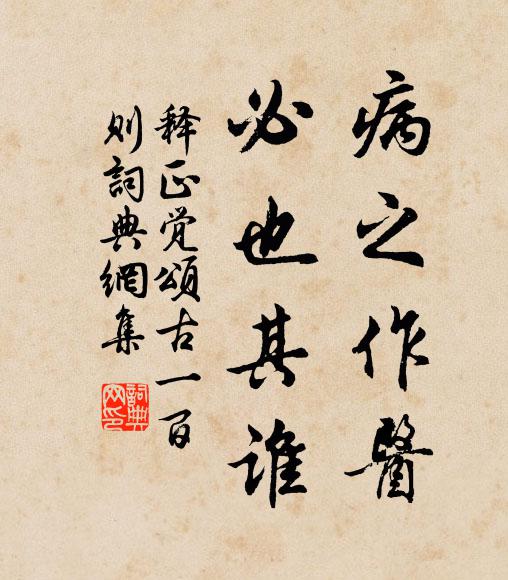 病之作醫
必也其誰
释正觉頌古一百
则詞典網集
詞典
网印